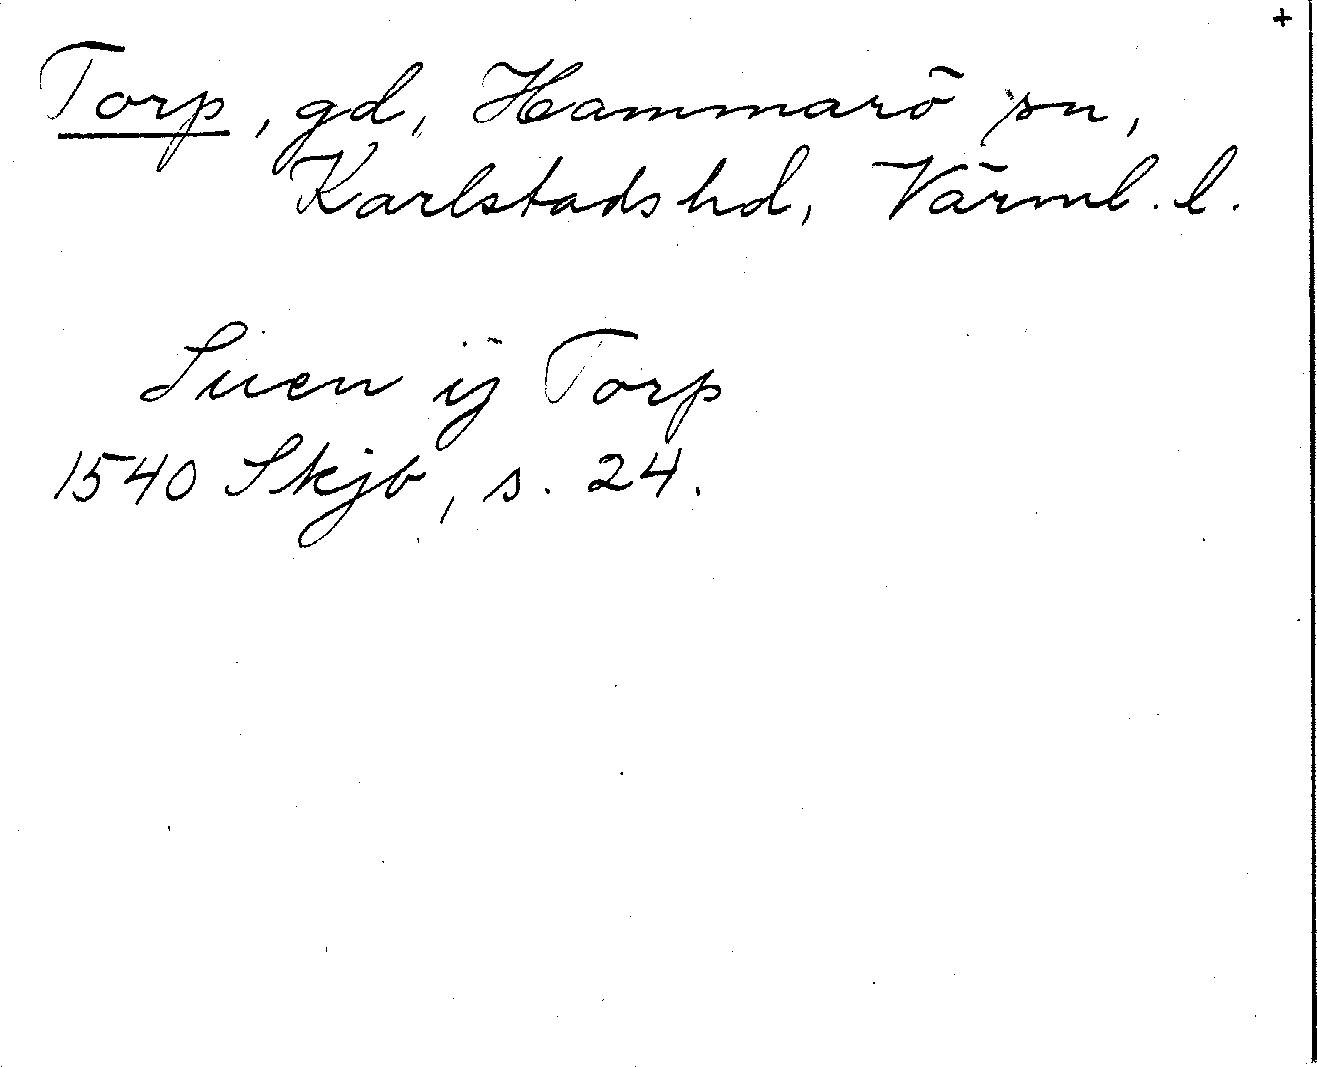 +
Torp, gd, Hammarö sn,
Karlstads hd, Värml. l.
Suen ij Torp
1540 Skjb, s. 24.